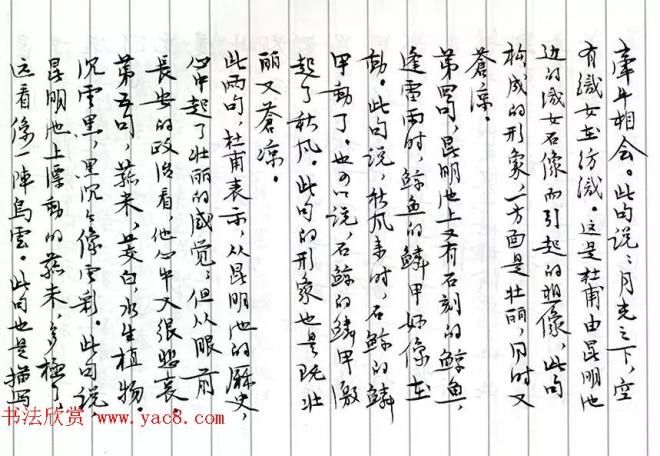 牽牛相会。此句说：月光之下，空
有織女在纺織。这是杜甫由昆明池
边的織女石像而引起的想像，此句
构成的形象，一方面是壮丽，同时又
蒼凉。
第四句，昆明池上又有石刻的鲸鱼，
逢雷雨时，鲸鱼的鳞甲好像在
動。此句说，秋风来时，石鲸的鳞
甲動了。也可以说，石鲸的鳞甲激
起了秋风。此句的形象也是既壮
丽又蒼凉。
此两句，杜甫表示，从昆明池的歷史，
心中起了壮丽的感觉；但从眼前
長安的政治看，他心中又很悲哀。
第五句，菰米，茭白，水生植物。
沉雲黑，黑沉々像雲彩。此句说，
昆明池上漂動的菰米，多極了，
远看像一陣烏雲。此句也是描写
书法欣赏 www.yac8.com